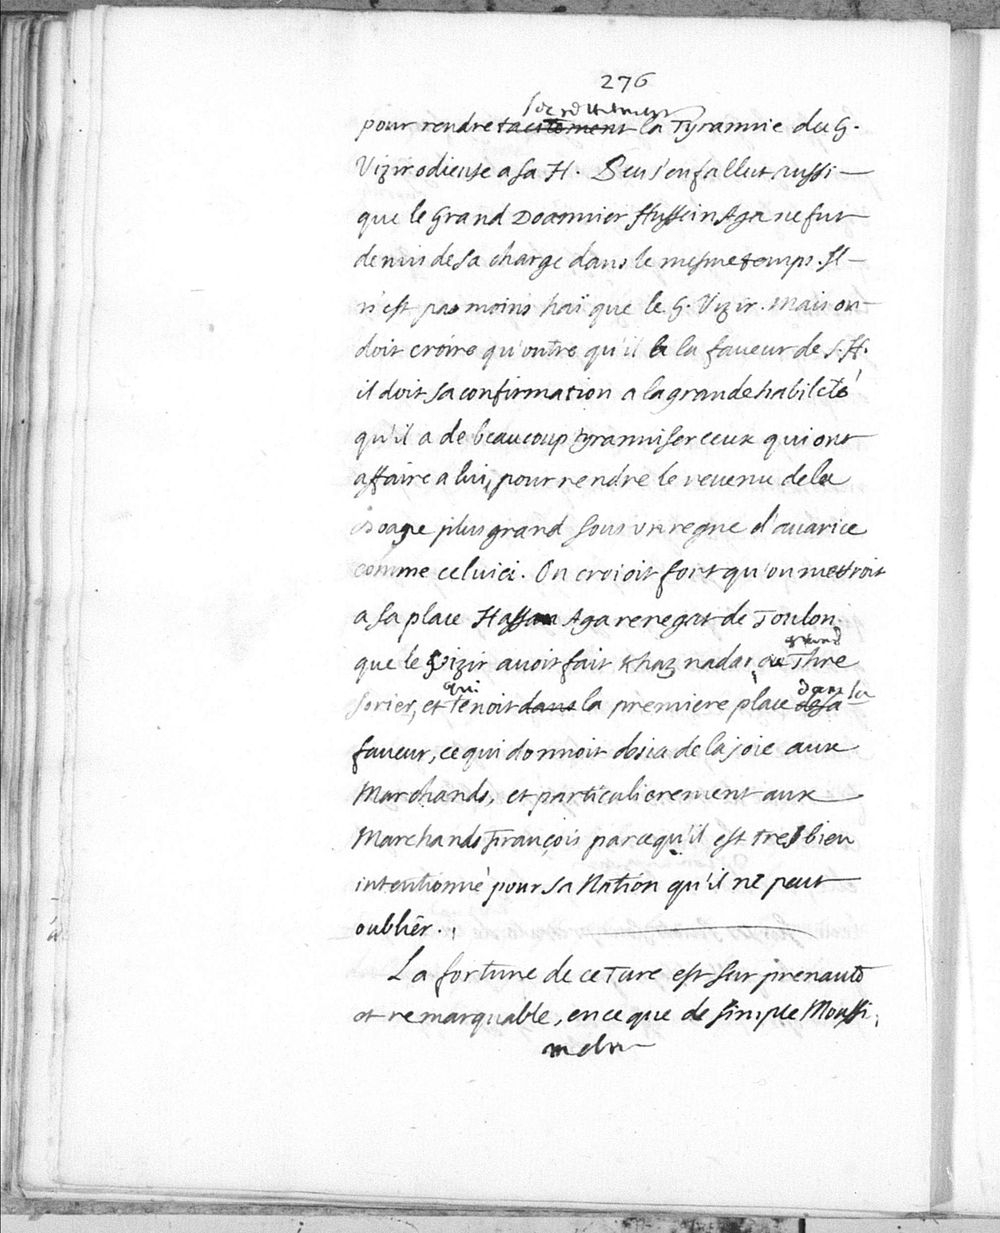 276
secretement
pour rendre tacitement la Tyrannie du G.
Vizir odieuse a sa H. Peu s'en fallut aussi
que le Grand Doannier Hussein Aga ne fut
demis de sa charge dans le mesme temps. Il
n'est pas moins haï que le G. Vizir. Mais on
doit croire qu'outre qu'il a la faveur de S. H.
il doit sa confirmation a la grande habileté
qu'il a de beaucoup tyranniser ceux qui ont
affaire a lui, pour rendre le revenu de la
Doane plus grand sous un regne d'avarice
comme celuici. On croioit fort qu'on mettroit
a sa place Hassan Aga renegat de Toulon,
grand
que le Vizir avoit fait Khaznadar, ou Thre
qui dans la
sorier, et tenoit dans la premiere place de sa
faveur, ce qui donnoit desia de la joie aux
Marchands, et particulierement aux
Marchands François parcequ'il est tres bien
intentionné pour sa Nation qu'il ne peut
oublier.
La fortune de ce Turc est surprenante
et remarquable, en ce que de simple Moussi,